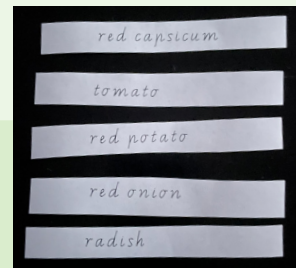 red capsicum
tomato
red potato
red onion
radish